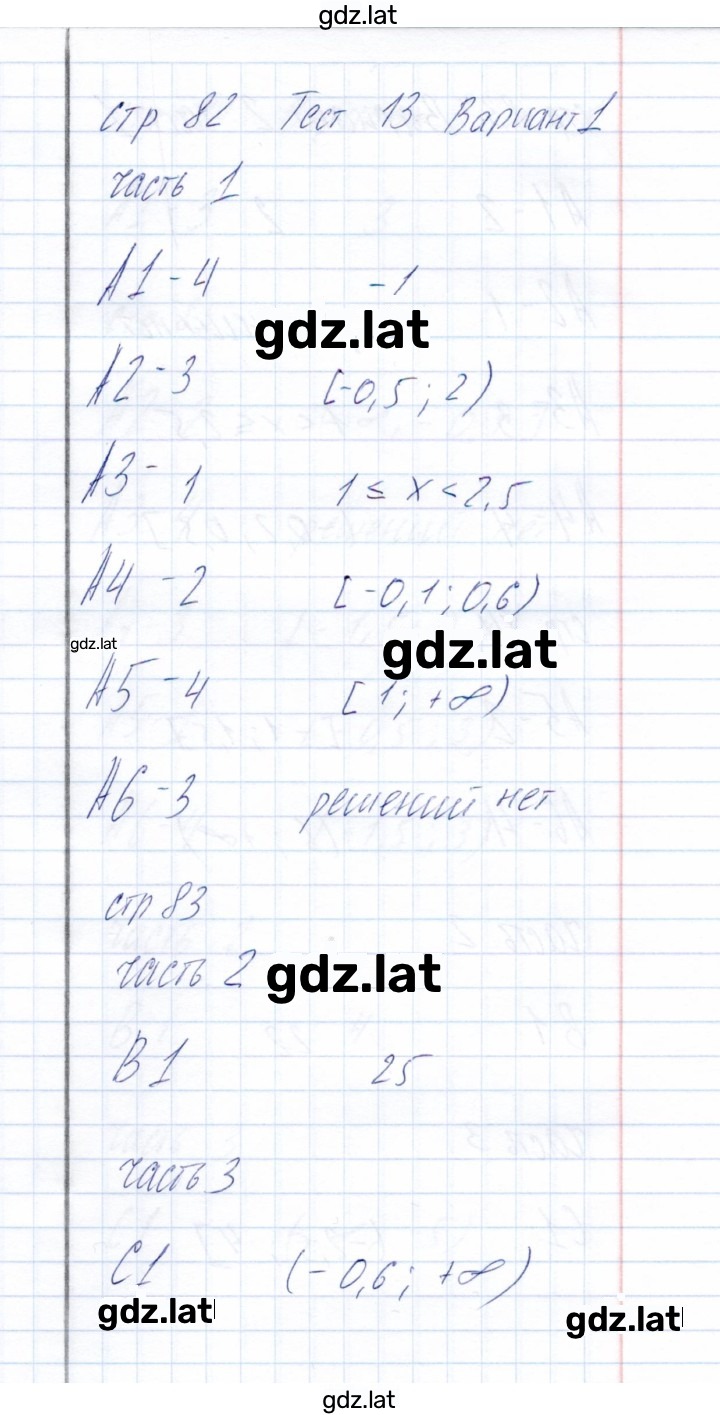 gdz.lat
стр 82 Тест 13 Вариант 1
часть 1
А1 - 4 -1
gdz.lat
А2 - 3 [-0,5; 2)
А3 - 1 1 ≤ x < 2,5
А4 - 2 [-0,1; 0,6)
gdz.lat
gdz.lat
А5 - 4 [1; +∞)
А6 - 3 решений нет
стр 83
часть 2 gdz.lat
В1 25
часть 3
С1 (-0,6; +∞)
gdz.lat
gdz.lat
gdz.lat